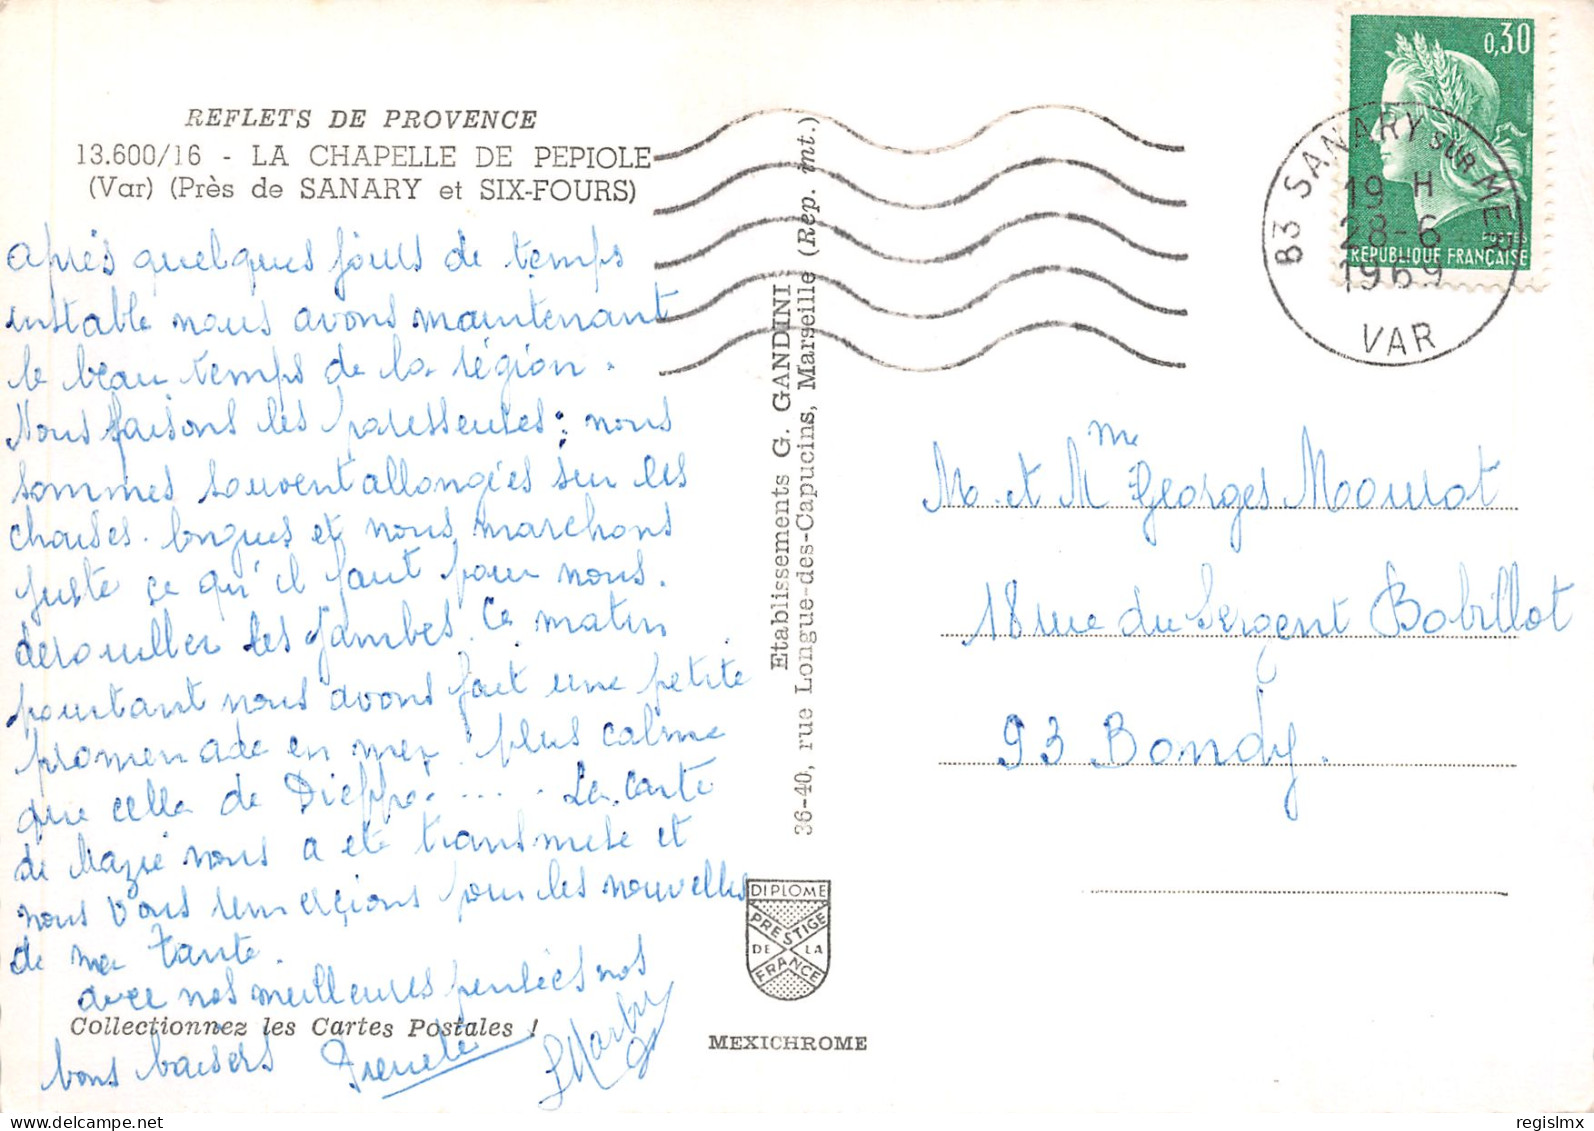 REFLETS DE PROVENCE
13.600/16 - LA CHAPELLE DE PEPIOLE
(Var) (Près de SANARY et SIX-FOURS)
après quelques jours de temps
instable nous avons maintenant
le beau temps de la région.
Nous faisons les paresseuses; nous
sommes souvent allongées sur les
chaises longues et nous marchons
juste ce qu'il faut pour nous
dérouiller les jambes. Ce matin
pourtant nous avons fait une petite
promenade en mer plus calme
que celle de Dieppe..... La carte
de nous a été transmise et
nous vous remercions pour les nouvelles
de ma tante.
avec nos meilleures pensées nos
Collectionnez les Cartes Postales !
bons baisers
Etablissements G. GANDINI
36-40, rue Longue-des-Capucins, Marseille (Rep. int.)
DIPLOME
PRESTIGE
DE LA
FRANCE
MEXICHROME
0,30
POSTES
REPUBLIQUE FRANÇAISE
83 SANARY SUR MER
19 H
28-6
1969
VAR
M. et Mme Georges
18 rue du Sergent Bobillot
93 Bondy.
regislmx